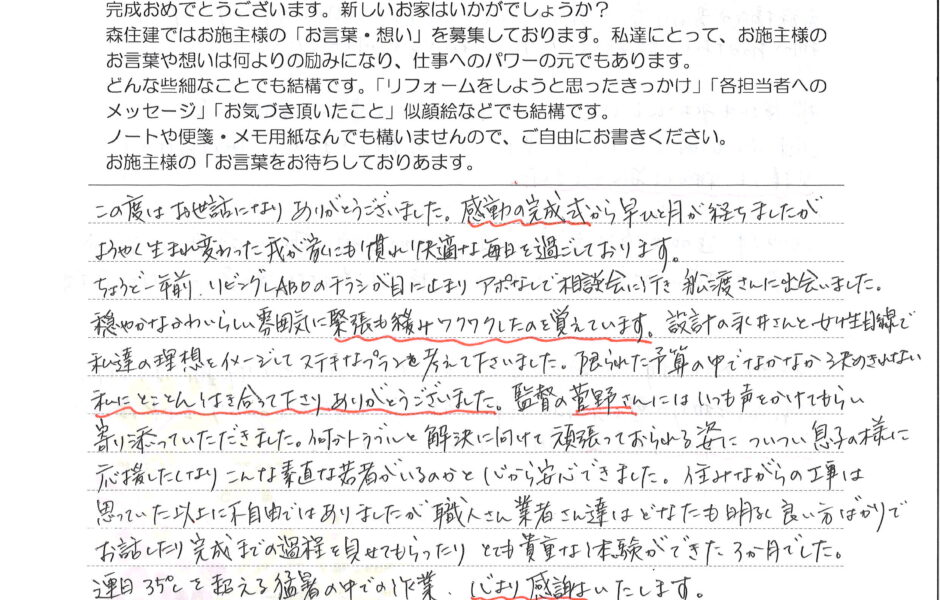 完成おめでとうございます。新しいお家はいかがでしょうか?
森住建ではお施主様の「お言葉・想い」を募集しております。私達にとって、お施主様の
お言葉や想いは何よりの励みになり、仕事へのパワーの元でもあります。
どんな些細なことでも結構です。「リフォームをしようと思ったきっかけ」「各担当者への
メッセージ」「お気づき頂いたこと」似顔絵などでも結構です。
ノートや便箋・メモ用紙なんでも構いませんので、ご自由にお書きください。
お施主様の「お言葉をお待ちしておりあます。
この度は お世話になり ありがとうございました。感動の完成式から早ひと月が経ちましたが
ようやく生まれ変わった我が家にも慣れ快適な毎日を過ごしております。
ちょうど一年前、リビングLABOのチラシが目に止まり アポなしで相談会に行き 船渡さんに出会いました。
穏やかなかわいらしい雰囲気に緊張も緩みワクワクしたのを覚えています。設計の永井さんと女性目線で
私達の理想をイメージしてステキなプランを考えて下さいました。限られた予算の中でなかなか決めきれない
私にとことん付き合って下さりありがとうございました。監督の菅野さんにはいつも声をかけてもらい
寄り添っていただきました。何かトラブルと解決に向けて頑張っておられる姿に ついつい息子の様に
応援したくなり こんな素直な若者がいるのかと 心から安心できました。住みながらの工事は
思っていた以上に不自由ではありましたが 職人さん業者さん達は どなたも明るく良い方ばかりで
お話したり完成までの過程を見せてもらったり とても貴重な体験ができた3か月でした。
連日35℃を超える猛暑の中での作業、心より感謝いたします。